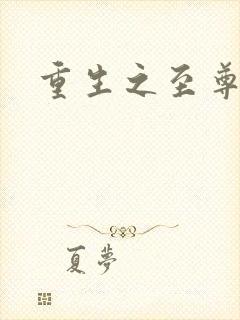 重生之至尊
夏夢